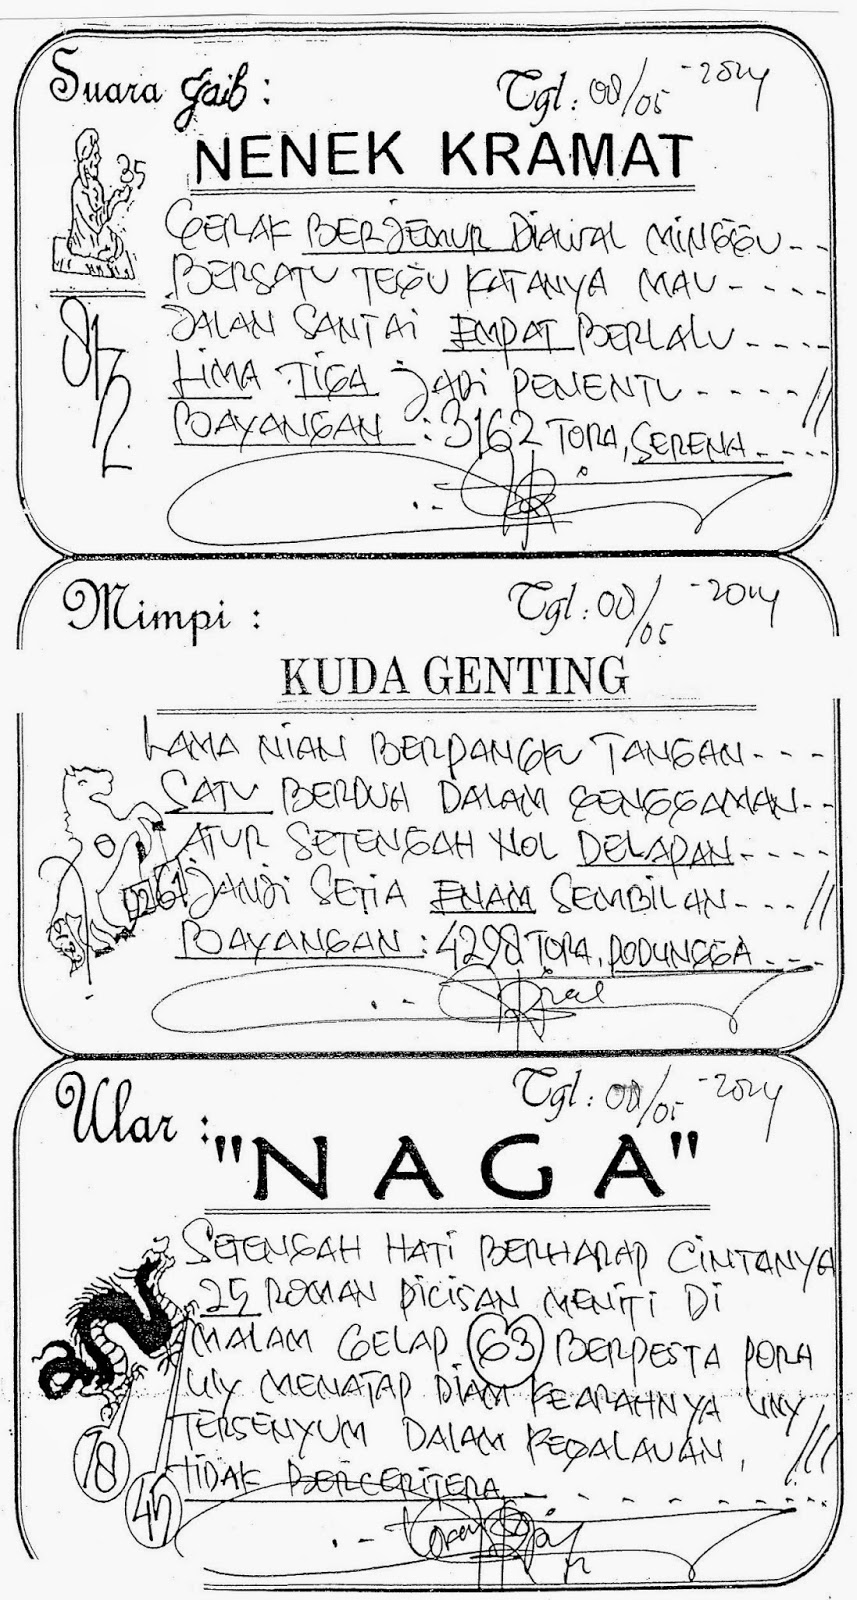 Suara Gaib :
Tgl : 08/05 - 2014
NENEK KRAMAT
35
GERAK BERJEMUR DIAWAL MINGGU - -
BERSATU TEGU KATANYA MAU - - - -
JALAN SANTAI EMPAT BERLALU - - - -
LIMA TIGA JADI PENENTU - - - - //
BAYANGAN : 3162 TORA, SERENA - - - -
Mimpi :
Tgl : 08/05 - 2014
KUDA GENTING
LAMA NIAN BERPANGKU TANGAN - - - -
SATU BERDUA DALAM GENGGAMAN - -
ATUR SETENGAH NOL DELAPAN - - - -
JANJI SETIA ENAM SEMBILAN - - - //
BAYANGAN : 4298 TORA, DODUNGGA - - - -
Ular :
Tgl : 08/05 - 2014
"NAGA"
SETENGAH HATI BERHARAP CINTANYA
25 ROMAN PICISAN MENITI DI
MALAM GELAP 63 BERPESTA PORA
MENATAP DIAM KEARAHNYA
TERSENYUM DALAM KEGALAUAN,
TIDAK BERCERITERA - - - - - - -
78
45